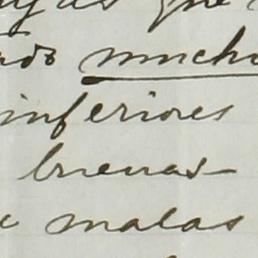 que
mucho
inferiores
buenas
malas